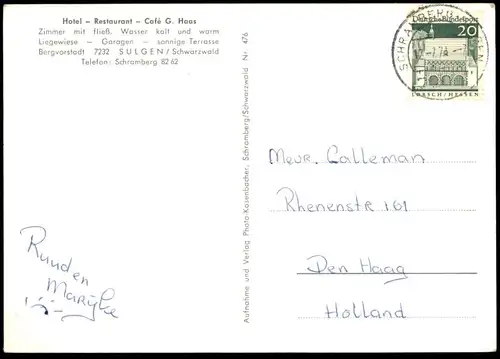 Hotel – Restaurant – Café G. Haas
Zimmer mit fließ. Wasser kalt und warm
Liegewiese – Garagen – sonnige Terrasse
Bergvorstadt 7232 SULGEN/Schwarzwald
Telefon: Schramberg 82 62
Aufnahme und Verlag Photo-Kasenbacher, Schramberg/Schwarzwald Nr. 476
SCHRAMBERG-SULGEN
Deutsche Bundespost
20
LORSCH/HESSEN
Mevr. Calleman
Rhenenstr 161
Den Haag
Holland
Ruud en
Marijke